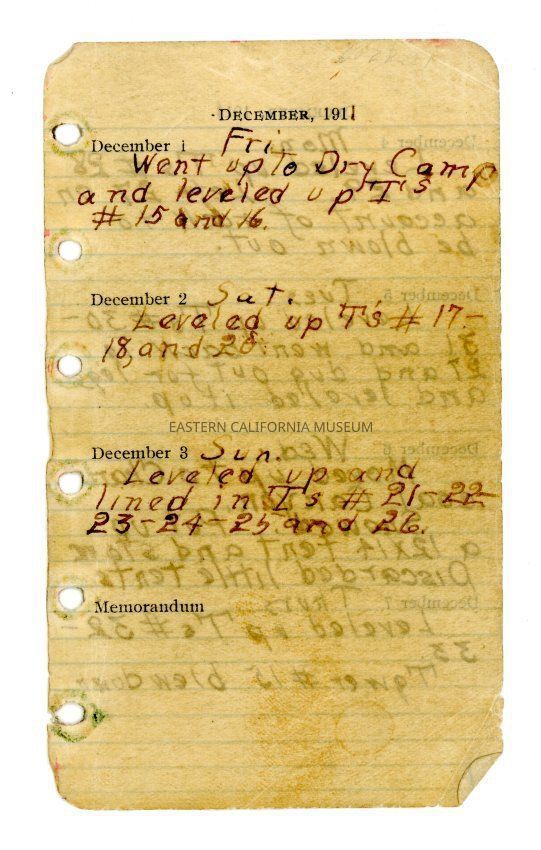 DECEMBER, 1911
December 1 Fri.
Went up to Dry Camp
and leveled up T's
# 15 and 16.
December 2 Sat.
Leveled up T's # 17-
18, and 20.
EASTERN CALIFORNIA MUSEUM
December 3 Sun.
Leveled up and
lined in T's # 21-22-
23-24-25 and 26.
Memorandum